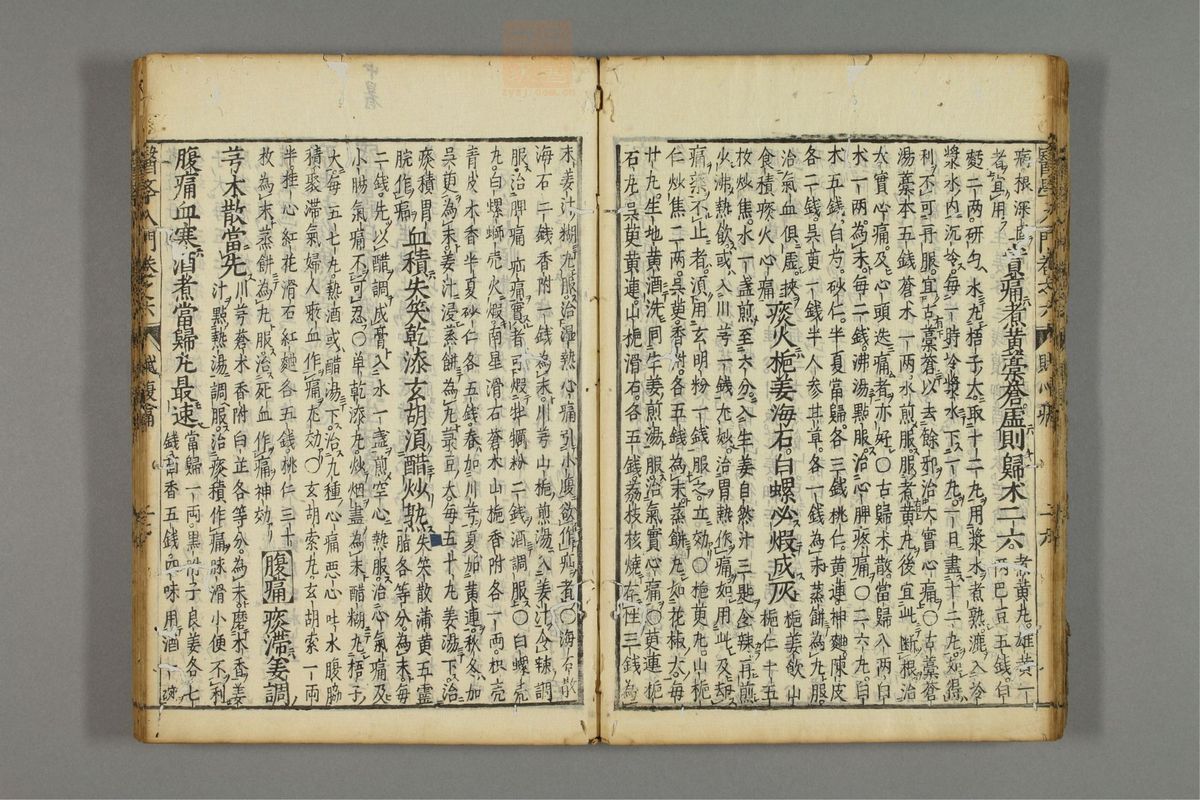 者宜用
實痛煮黃藁蒼虛則歸朮二六
煮黃丸雄黃一
兩巴豆五錢白
麪二兩研勻水丸梧子大取二十二丸用漿水煮熟漉入冷
漿水內沉冷每一時冷漿水下二丸一日盡十二丸如得
利不可再服宜古藁蒼以去餘邪治大實心痛○古藁蒼
湯藁本五錢蒼朮一兩水煎服服煮黃丸後宜此斷根治
大實心痛及心頭迭痛者亦好○古歸朮散當歸八兩白
朮一兩為末每二錢沸湯點服治心脾疼痛○二六丸白
朮五錢白芍砂仁半夏當歸各三錢桃仁黃連神麯陳皮
各二錢吳茰一錢半人參甘草各一錢為末蒸餅為丸服
治氣血俱虛挾
食積痰火心痛
痰火梔姜海石白螺必煅成灰
梔姜飲山
梔仁十五
枚炒焦水一盞煎至六分入生姜自然汁三匙令辣再煎
少沸熱飲或入川芎一錢尤妙治胃熱作痛如用此及劫
痛藥不止者須用玄明粉一錢服之立効○梔茰丸山梔
仁炒焦二兩吳茰香附各五錢為末蒸餅丸如花椒大每
廿丸生地黃酒洗同生姜煎湯服治氣實心痛○茰連梔
石丸吳茰黃連山梔滑石各五錢荔枝核燒存性三錢為
末姜汁糊丸服治濕熱心痛引小腹欲作疝者○海石散
海石二錢香附一錢為末川芎山梔煎湯入姜汁令辣調
服治脾痛疝痛實者可煅牡犡粉二錢酒調服○白螺殼
丸白螺螄殼火煅南星滑石蒼朮山梔香附各一兩枳殼
青皮木香半夏砂仁各五分春加川芎夏加黃連秋冬加
吳茰為末姜汁浸蒸餅為丸菉豆大每五十丸姜湯下治
痰積胃
脘作痛
血積失笑乾漆玄胡須醋炒熟
失笑散蒲黃五靈
脂各等分為末每
二錢先以醋調成膏入水一盞煎空心熱服治心氣痛及
小腸氣痛不可忍○單乾漆丸炒烟盡為末醋糊丸梧子
大每五七丸熱酒或醋湯下治九種心痛惡心吐水腹脇
積聚滯氣婦人瘀血作痛尤効○玄胡索丸玄胡索一兩
半桂心紅花滑石紅麯各五錢桃仁三十
枚為末蒸餅為丸服治死血作痛神効
腹痛
痰滯姜調
芎朮散當先
川芎蒼朮香附白芷各等分為末磨木香姜
汁點熱湯調服治痰積作痛脉滑小便不利
腹痛血寒酒煮當歸丸最速
當歸一兩黑附子良姜各七
錢茴香五錢四味用酒一
醫學入門卷之六